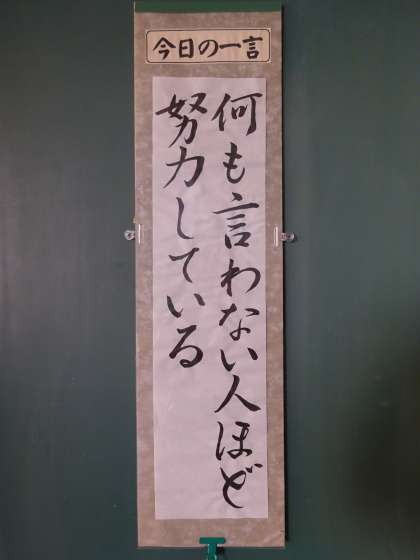 今日の一言
何も言わない人ほど
努力している